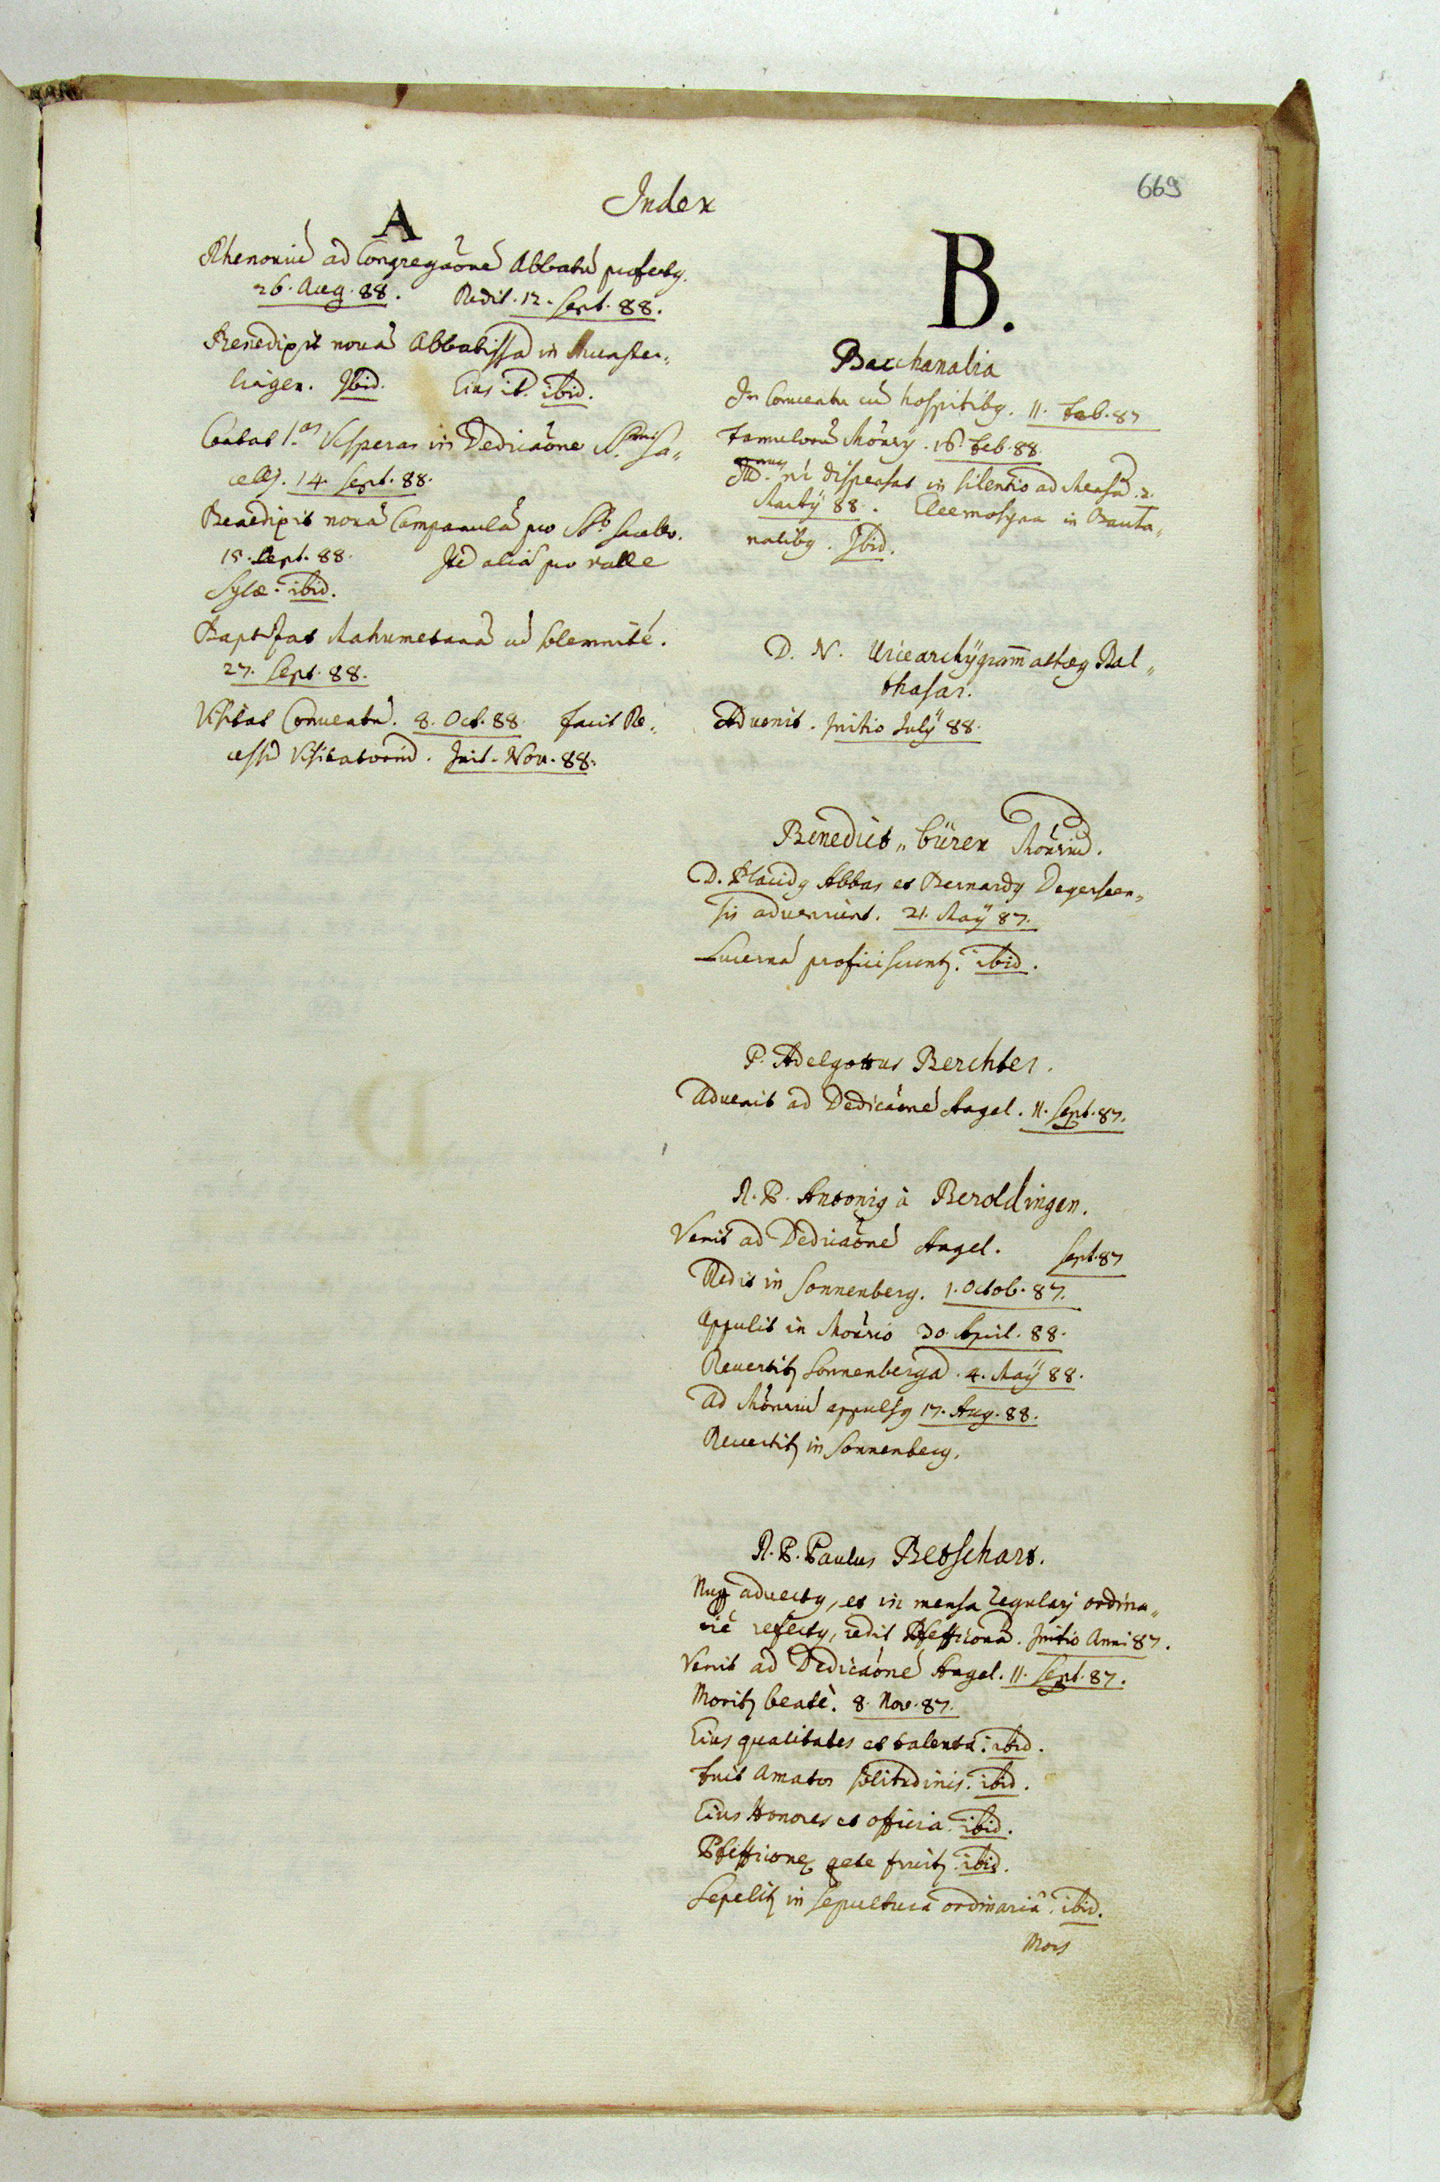 669
Index
A
Rhenoviū ad Congregaōnē Abbatū profectꝯ.
26. Aug. 88. Redit. 12. Sept. 88.
Benedixit novā Abbatissā in Münster„
lingen. Ibid. Eius it. ibid.
Cantat 1.as Vesperas in Dedicaōne S.
cellj. 14. Sept. 88.
Benedixit novā Campanulā pro Sto sacello.
15. Sept. 88. Itē aliā pro valle
Sylæ. ibid.
Baptizat Mahumetanā cū solemnité.
27. Sept. 88.
Visitat Conventū. 8. Oct. 88. facit Re„
cessū Visitatoriū. Init. Nov. 88.
B.
Bacchanalia
In Conventu cū hospitibꝯ. 11. Feb. 87
Famulorū Mōrrÿ. 16. Feb. 88.
nō dispensat in silentio ad Mensā. 2.
Martÿ 88. Eleemosyna in Bacha„
nalibꝯ. Ibid.
D. N. Balthasar.
Advenit. Initio Julÿ 88.
Benedict„ büren Mōrriū.
D. Placidꝯ Abbas et Bernardꝯ Degerseen„
sis adveniunt. 21. Maÿ 87.
Lucernā proficiscuntꝛ. ibid.
P. Adelgottus Berchter.
Advenit ad Dedicaōnē Angel. 11. Sept. 87.
R. P. Antoniꝯ à Beroldingen.
Venit ad Dedicaōnē Angel. Sept. 87
Redit in Sonnenberg. 1. Octob. 87.
Appulit in Mōrrio 30. April. 88.
Revertitꝛ Sonnenbergā. 4. Maÿ 88.
Ad Mōrriū appulsꝯ 17. Aug. 88.
Revertitꝛ in Sonnenberg.
R. P. Paulus Betschart.
advectꝯ, et in mensa regularj ordina„
riè refectꝯ, redit Pfefficonā. Initio Anni 87.
Venit ad Dedicaōnē Angel. 11. Sept. 87.
Moritꝛ beatè. 8. Nov. 87.
Eius qualitates et talenta. ibid.
Fuit Amator solitudinis. ibid.
Eius Honores et officia. ibid.
ibid.
Sepelitꝛ in sepultura ordinariâ. ibid.
Mors